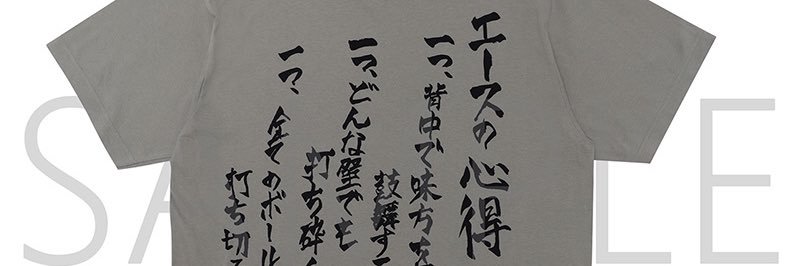 エースの心得
一つ、背中で味方を
鼓舞する
一つ、どんな壁でも
打ち砕く
一つ、全てのボールを
打ち切る
SAMPLE